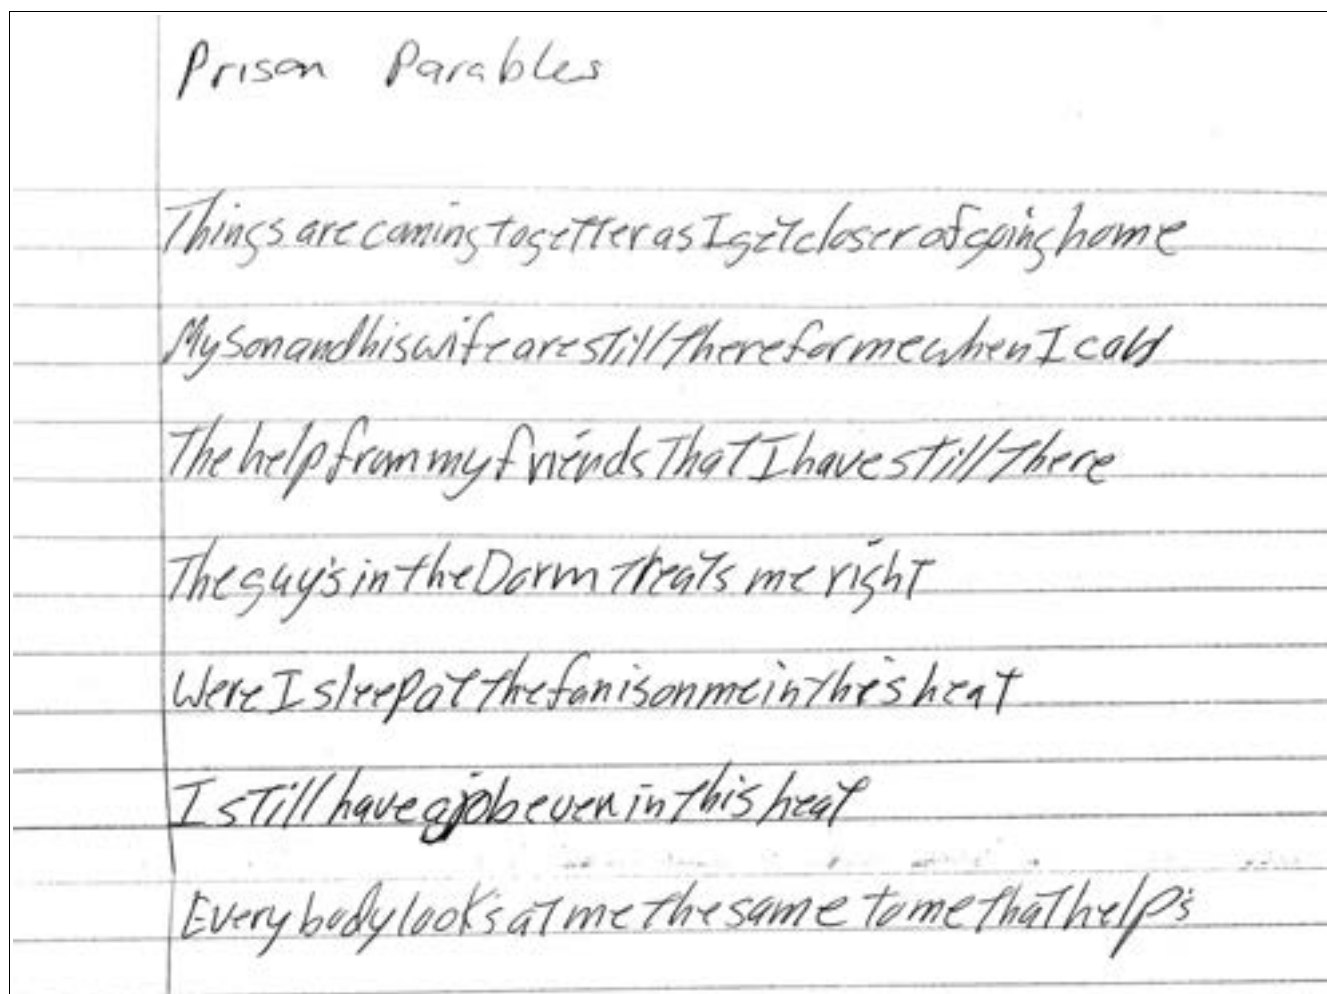 Prison Parables
Things are coming togetter as I get closer of going home
My Son and his wife are still there for me when I call
The help from my friends that I have still there
The guy's in the Dorm treats me right
Were I sleep at the fan is on me in this heat
I still have a job even in this heat
Every body look's at me the same to me that help's